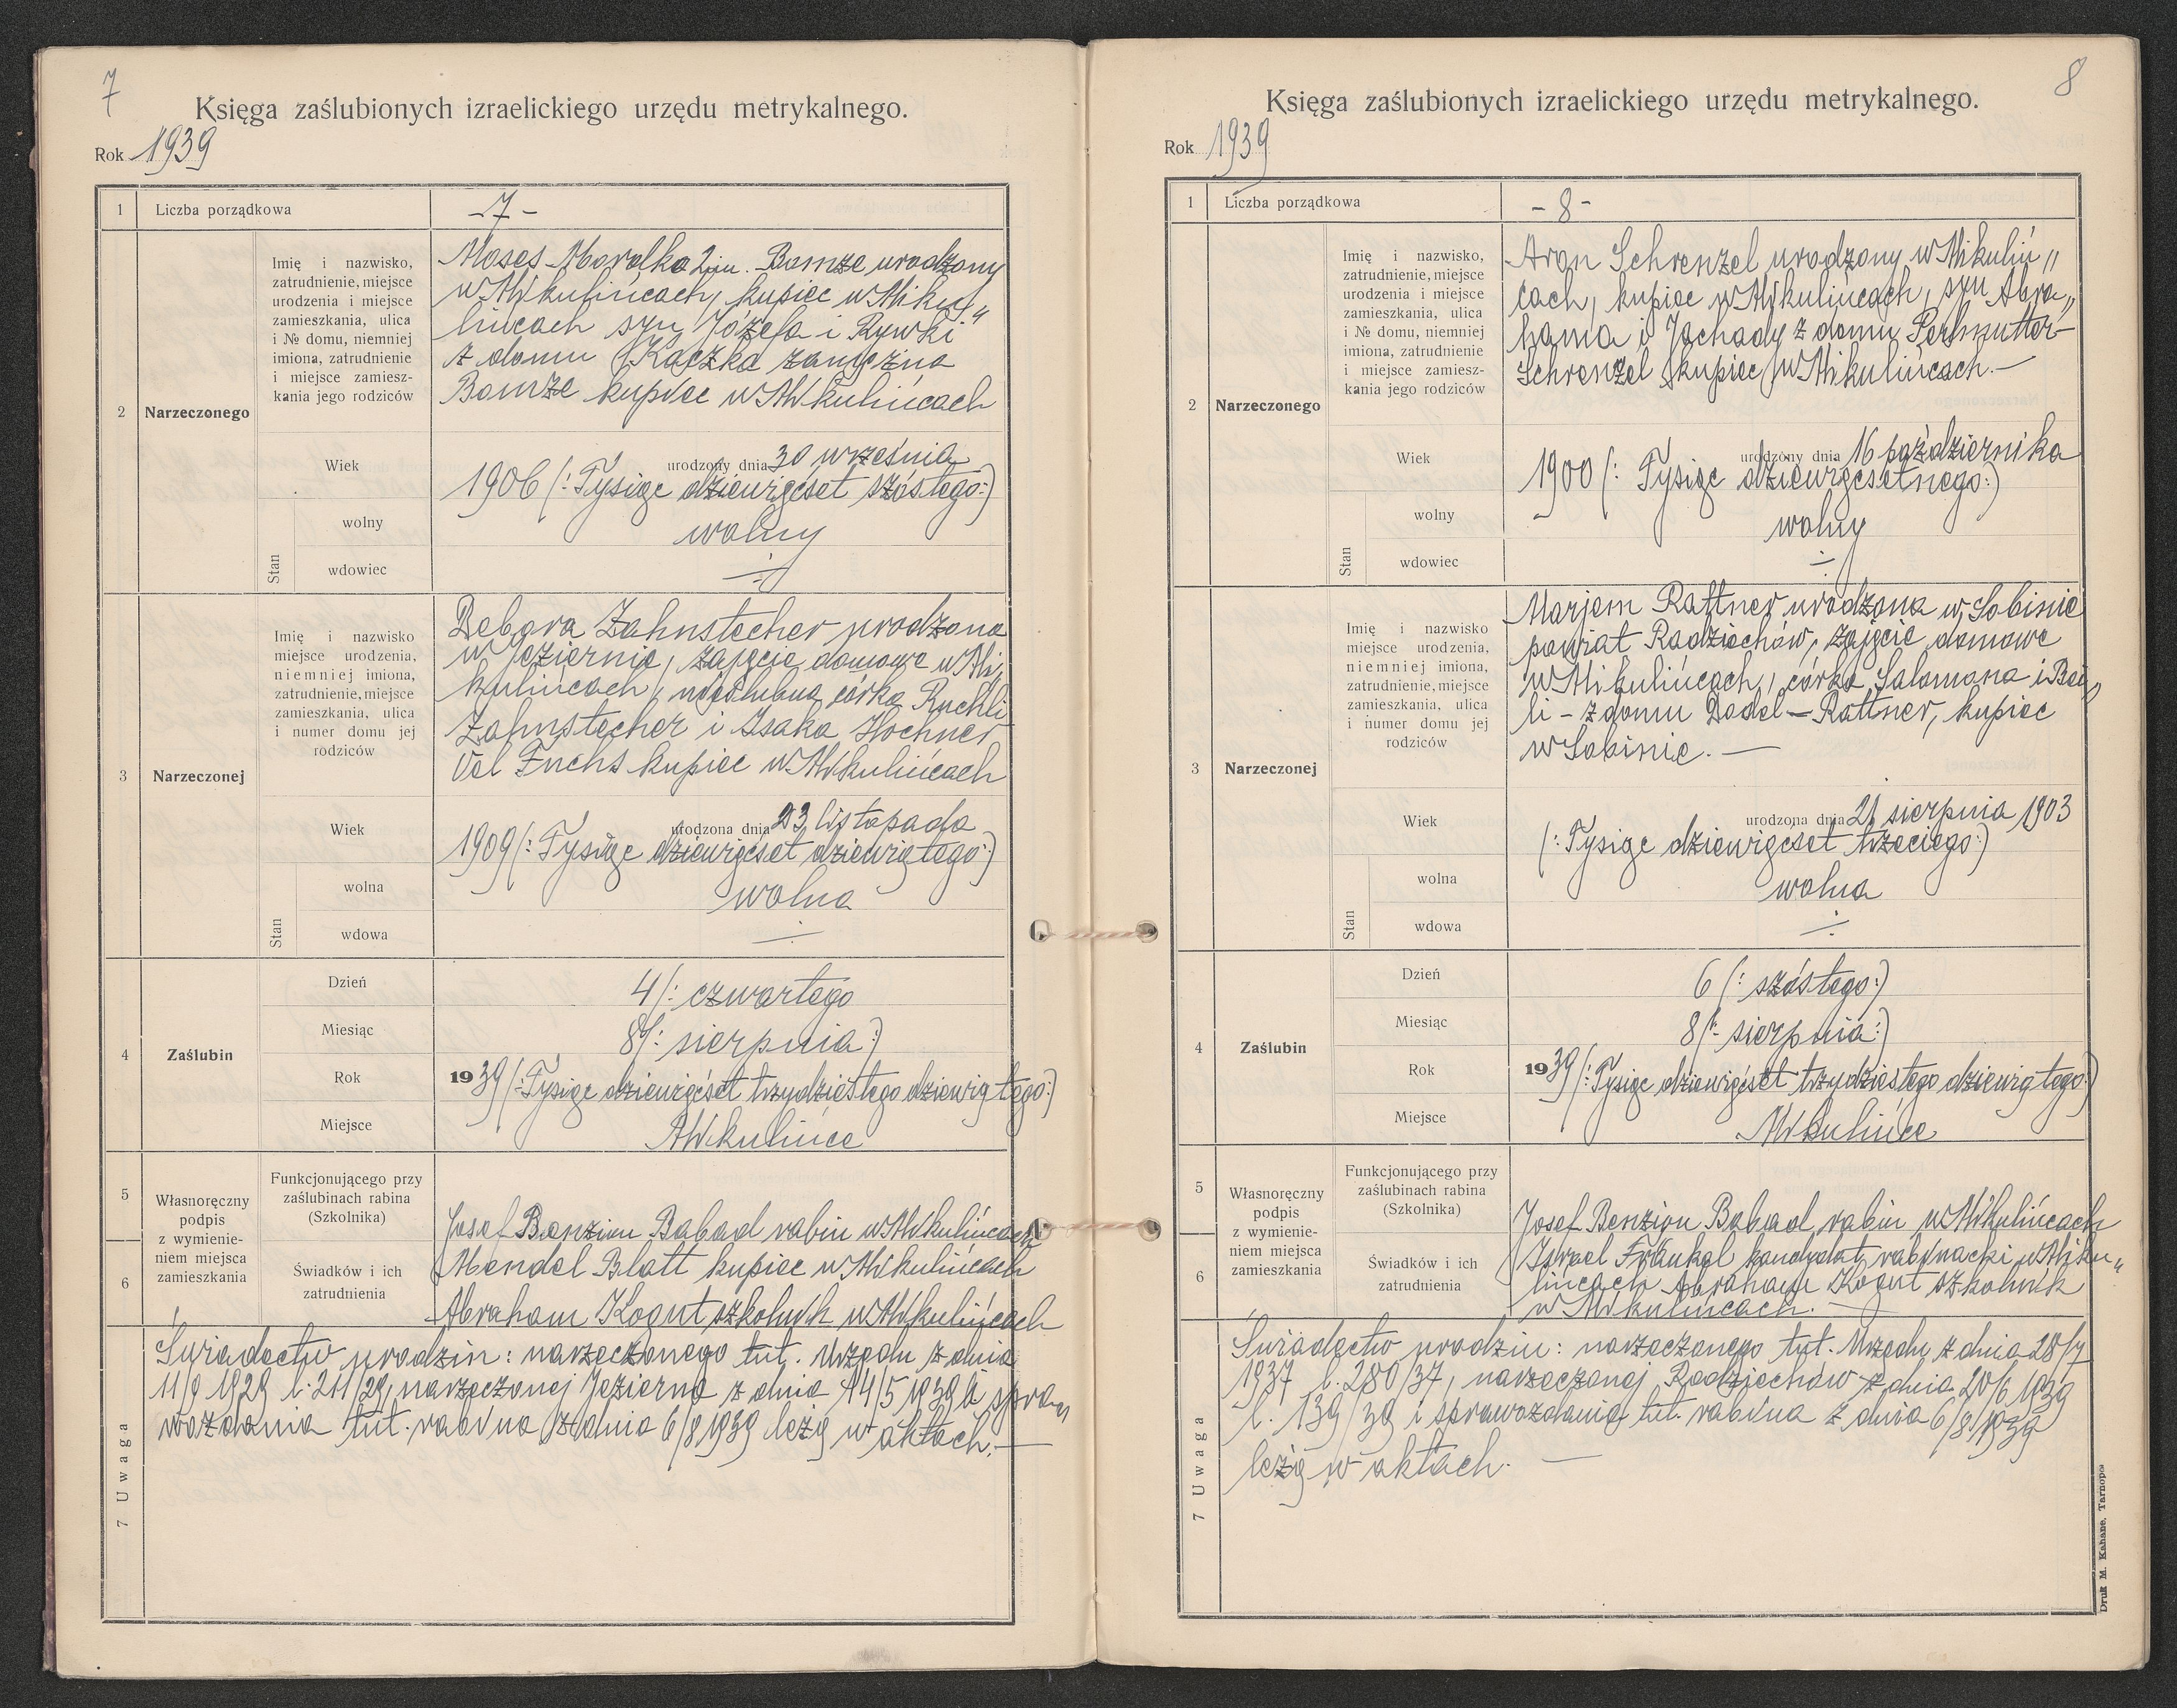 7
Księga zaślubionych izraelickiego urzędu metrykalnego.
Rok 1939
1 Liczba porządkowa - 7 -
2 Narzeczonego
Imię i nazwisko,
zatrudnienie, miejsce
urodzenia i miejsce
zamieszkania, ulica
i № domu, niemniej
imiona, zatrudnienie
i miejsce zamiesz-
kania jego rodziców
Moses Mordko 2 im. Bomze urodzony
w Mikulińcach, kupiec w Miku„
lińcach syn Józefa i Rywki
z domu Kaczka zamężna
Bomze kupiec w Mikulińcach
Wiek urodzony dnia 30 września
1906 (: Tysiąc dziewięćset szóstego:)
Stan
wolny wolny
wdowiec ÷
3 Narzeczonej
Imię i nazwisko
miejsce urodzenia,
niemniej imiona,
zatrudnienie, miejsce
zamieszkania, ulica
i numer domu jej
rodziców
Debora Zahnstecher urodzona
w Jeziernie, zajęcie domowe w Mi„
kulińcach, nieślubna córka Ruchli
Zahnstecher i Isaka Hochner
Vel Fuchs kupiec w Mikulińcach
Wiek urodzona dnia 23 listopada
1909 (: Tysiąc dziewięćset dziewiątego:)
Stan
wolna wolna
wdowa ÷
4 Zaślubin
Dzień 4 (: czwartego
Miesiąc 8 (: sierpnia:)
Rok 1939 (: Tysiąc dziewięćset trzydziestego dziewiątego:)
Miejsce Mikulińce
5
6
Własnoręczny
podpis
z wymienie-
niem miejsca
zamieszkania
Funkcjonującego przy
zaślubinach rabina
(Szkolnika)
Świadków i ich
zatrudnienia
Josef Benzion Babad rabin w Mikulińcach
Mendel Blatt kupiec w Mikulińcach
Abraham Kogut szkolnik w Mikulińcach
7 Uwaga
Świadectwo urodzin: narzeczonego tut. Urzędu z dnia
11/9 1929 l. 211/29, narzeczonej Jezierna z dnia 14/5 1939 i spra„
wozdania tut. rabina z dnia 6/8 1939 leżą w aktach. —
8
Księga zaślubionych izraelickiego urzędu metrykalnego.
Rok 1939
1 Liczba porządkowa - 8 -
2 Narzeczonego
Imię i nazwisko,
zatrudnienie, miejsce
urodzenia i miejsce
zamieszkania, ulica
i № domu, niemniej
imiona, zatrudnienie
i miejsce zamiesz-
kania jego rodziców
Aron Schrenzel urodzony w Mikuliń„
cach, kupiec w Mikulińcach, syn Abra„
hama i Jochady z domu Perlmutter
Schrenzel kupiec w Mikulińcach. —
Wiek urodzony dnia 16 października
1900 (: Tysiąc dziewięćsetnego:)
Stan
wolny wolny
wdowiec ÷
3 Narzeczonej
Imię i nazwisko
miejsce urodzenia,
niemniej imiona,
zatrudnienie, miejsce
zamieszkania, ulica
i numer domu jej
rodziców
Marjem Rattner urodzona w Sobinie
powiat Radziechów, zajęcie domowe
w Mikulińcach, córka Salomona i Bei„
li - z domu Dodel - Rattner, kupiec
w Sobinie. —
Wiek urodzona dnia 21 sierpnia 1903
(: Tysiąc dziewięćset trzeciego:)
Stan
wolna wolna
wdowa ÷
4 Zaślubin
Dzień 6 (: szóstego:)
Miesiąc 8 (: sierpnia:)
Rok 1939 (: Tysiąc dziewięćset trzydziestego dziewiątego:)
Miejsce Mikulińce
5
6
Własnoręczny
podpis
z wymienie-
niem miejsca
zamieszkania
Funkcjonującego przy
zaślubinach rabina
(Szkolnika)
Świadków i ich
zatrudnienia
Josef Benzion Babad rabin w Mikulińcach
Israel Fränkel kandydat rabinacki w Miku„
lińcach Abraham Kogut szkolnik
w Mikulińcach. —
7 Uwaga
Świadectwo urodzin: narzeczonego tut. Urzędu z dnia 28/7
1937 l. 280/37, narzeczonej Radziechów z dnia 20/6 1939
l. 139/39 i sprawozdania tut. rabina z dnia 6/8 1939
leżą w aktach. —
Druk M. Kahane, Tarnopol